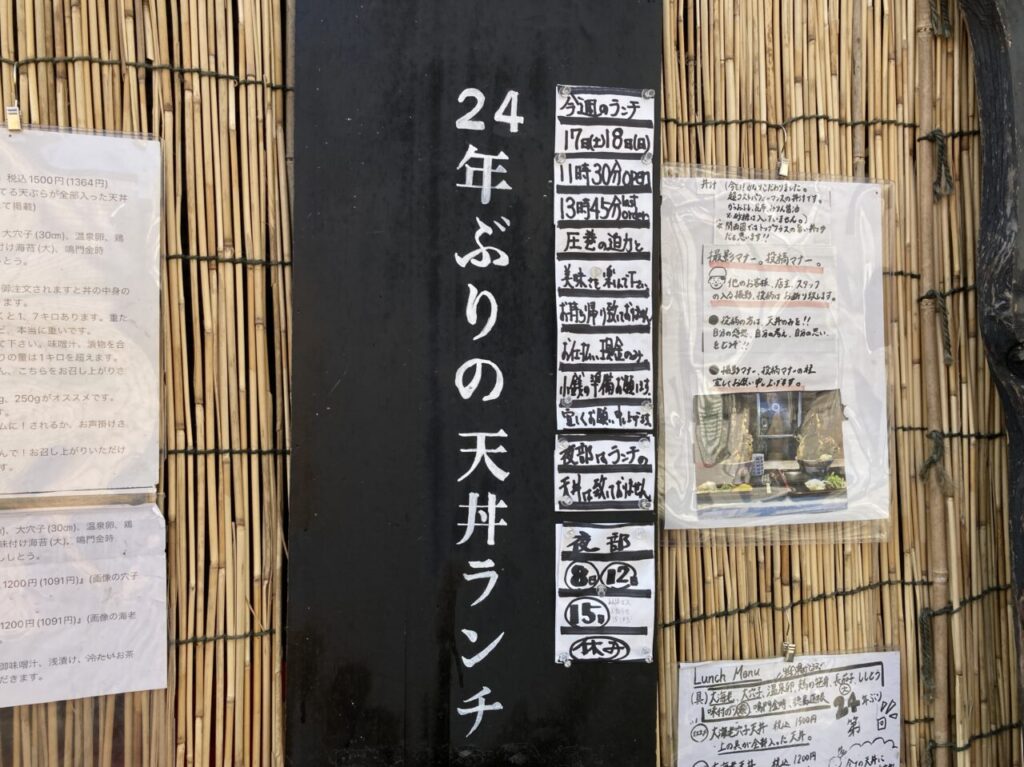 税込1500円(1364円)
てる天ぷらが全部入った天丼
て掲載)
大穴子(30㎝)、温泉卵、鶏
付け海苔(大)、鳴門金時
とう。
御注文されますと丼の中身の
ます。
くと1、7キロあります。重た
ど、本当に重いです。
て下さい。味噌汁、漬物を合
りの量は1キロを超えます。
ん、こちらをお召し上がりさ
g、250gがオススメです。
ムに!されるか、お声掛けさ
んで!お召し上がりいただけ
す。
、大穴子(30㎝)、温泉卵、鶏
味付け海苔(大)、鳴門金時
ししとう。
1200円(1091円)』(画像の穴子
1200円(1091円)』(画像の海老
御味噌汁、浅漬け、冷たいお茶
だきます。
24年ぶりの天丼ランチ
今週のランチ
17日(土)18日(日)
11時30分open
13時45分last order
圧巻の迫力と
美味さを楽しんで下さい
お持ち帰り致しておりません
お仕払い現金のみ
小銭の準備お願いします
宜しくお願い申し上げます
夜部はランチの
天丼は致しておりません
夜部
8日 12日
15日
休み
丼汁
撮影マナー。投稿マナー。
他のお客様、店主、スタッフ
の入る撮影、投稿はお断り致します。
●投稿の方は、天丼のみを!!
自分の感想、自分の考え、自分の思い
●撮影マナー、投稿マナーの程
宜しくお願い申し上げます。
Lunch Menu
(具)大海老、大穴子、温泉卵、鶏の笹身、長茄子、ししとう
大海老穴子天丼 税込 1500円
上の具が全部入った天丼。
大海老天丼 税込 1200円
24年ぶり
第 回